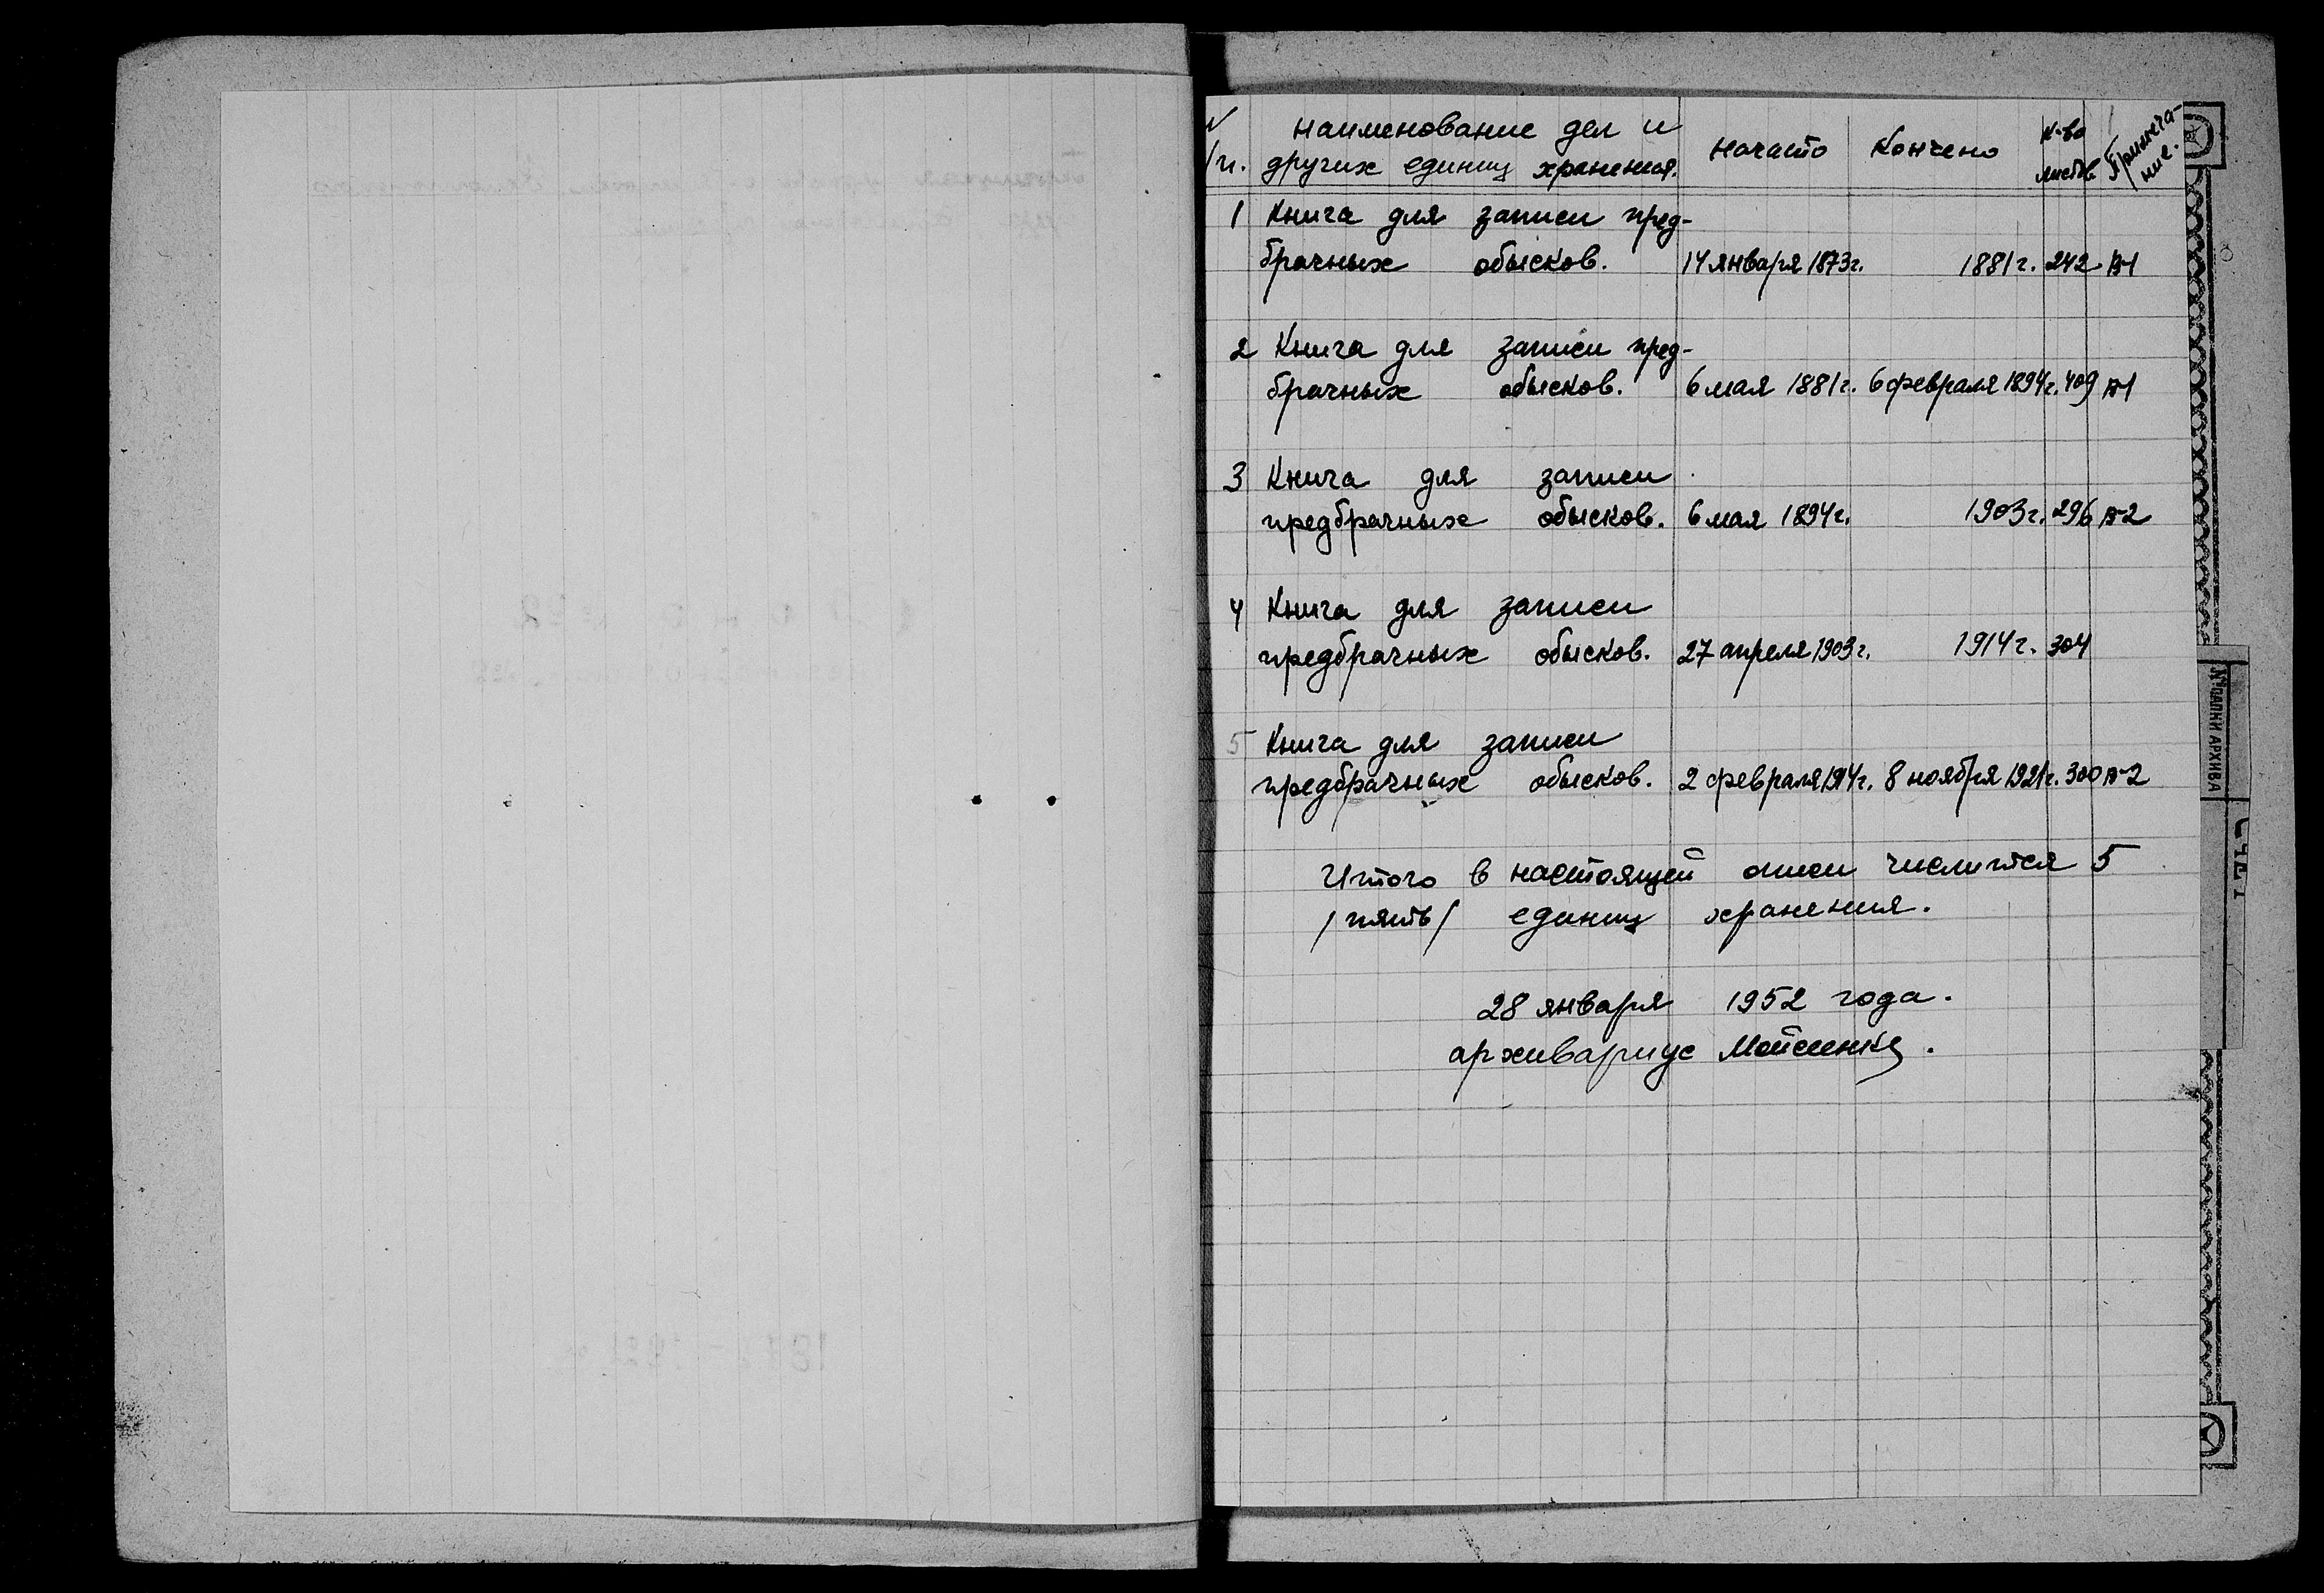 N наименование дел и начато Кончено к-во Примеча-
/п. других единиц хранения. листов ние.
1 Книга для записи пред-
брачных обысков. 14 января 1873г. 1881г. 242
2 Книга для записи пред-
брачных обысков. 6 мая 1881г. 6 февраля 1894г. 409
3 Книга для записи
предбрачных обысков. 6 мая 1894г. 1903г. 296
4 Книга для записи
предбрачных обысков. 27 апреля 1903г. 1914г. 304
5 Книга для записи
предбрачных обысков. 2 февраля 1914г. 8 ноября 1921г. 300
Итого в настоящей описи числится 5
/пять/ единиц хранения.
28 января 1952 года.
архивариус
№ ПАПКИ АРХИВА